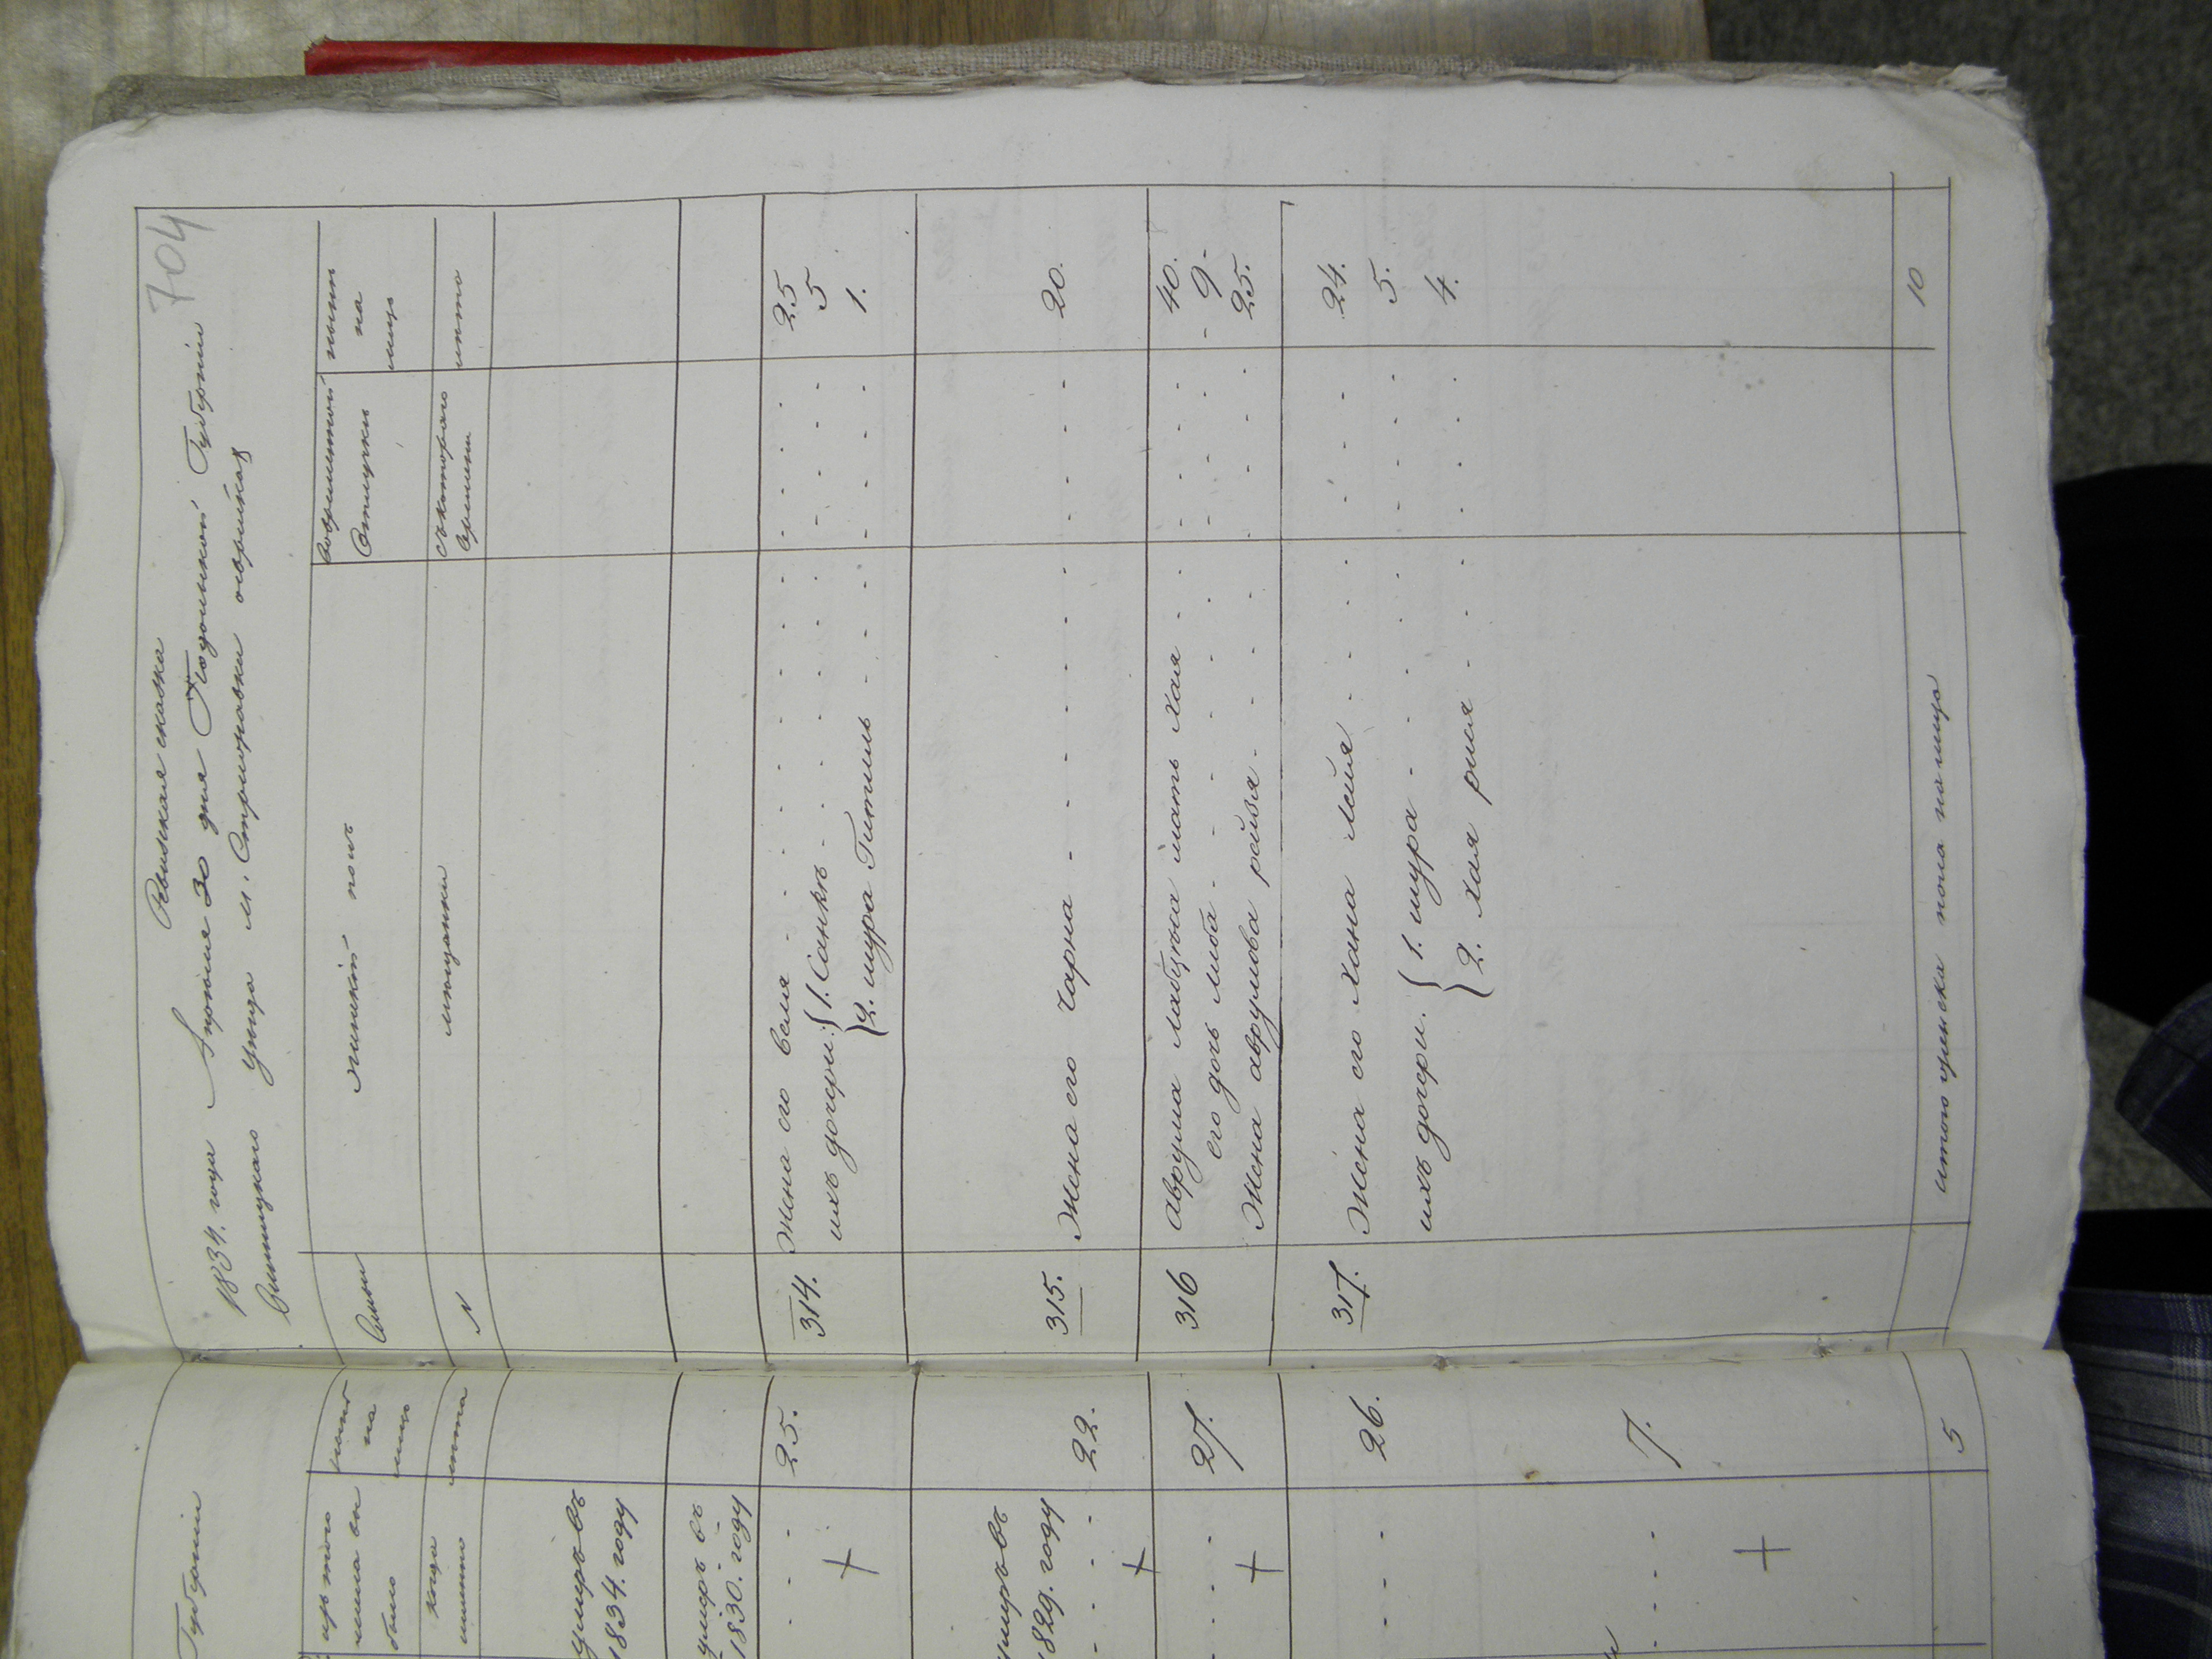 704
Ревизская сказка
1834. года Апреля 30 дня Подольской Губернии
Винницкаго уезда м. Стрижовки еврейская
Семьи
женский полъ
Вовременной
Отлучке
ныне
на
лицо
N
мещанки
съ котораго
времени
лета
314. Жена его Бейля 25
ихъ дочери. 1. Санкъ 5
2. шура Гительъ 1.
315. Жена его Чарна 20.
316 Аврума мать Хая 40.
его дочь Либа 9
Жена аврумова рейзя 25.
317. Жена его Хана Лейя 24.
ихъ дочери. 1. шура 5.
2. Хая рися 4.
итого женска пола на лицо 10
Губернии
изъ того
числа вы
было
ныне
на
лицо
когда
именно
лета
умеръ въ
1834. году
умеръ въ
1830. году
25.
умеръ въ
1829. году
22.
27.
26.
7.
5